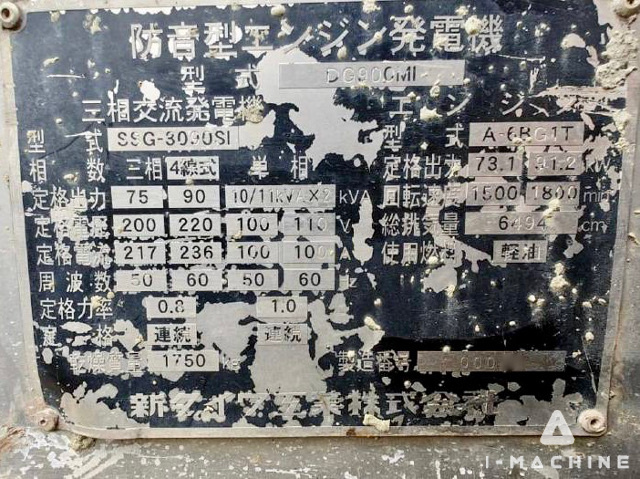 防音型エンジン発電機
型式 DG900MI
三相交流発電機 エンジン
型式 SSG-3090SI 型式 A-6BG1T
相数 三相 4線式 単相 定格出力 73.1 91.2 kW
定格出力 75 90 10/11kVA×2 kVA 回転速度 1500 1800 min
定格電圧 200 220 100 110 V 総排気量 6494 cm
定格電流 217 236 100 100 A 使用燃料 軽油
周波数 50 60 50 60 Hz
定格力率 0.8 1.0
定格 連続 連続
乾燥質量 1750 kg 製造番号
新ダイワ工業株式会社
I-MACHINE